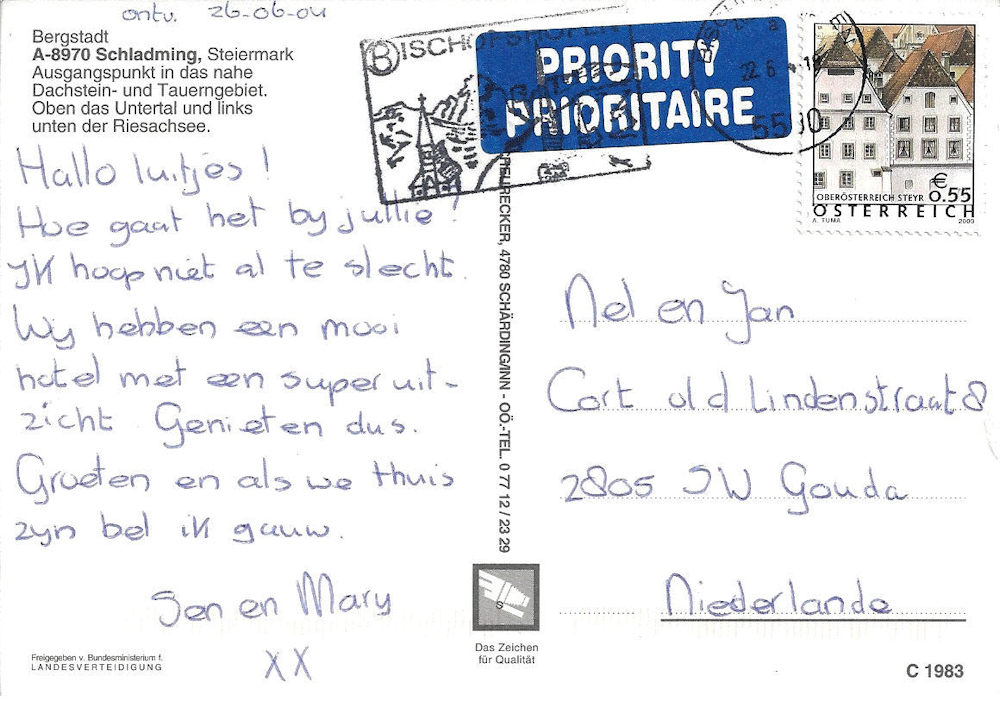 ontv. 26-06-04
Bergstadt
A-8970 Schladming, Steiermark
Ausgangspunkt in das nahe
Dachstein- und Tauerngebiet.
Oben das Untertal und links
unten der Riesachsee.
Hallo luitjes!
Hoe gaat het by jullie!
Ik hoop niet al te slecht.
Wy hebben een mooi
hotel met een super uit-
zicht. Genieten dus.
Groeten en als we thuis
zyn bel ik gauw.
Jen en Mary
XX
Freigegeben v. Bundesministerium f.
LANDESVERTEIDIGUNG
BISCHOFSHOFEN
PRIORITY
PRIORITAIRE
22.6
5500
OBERÖSTERREICH STEYR
€ 0.55
ÖSTERREICH
A. TUMA 2003
4780 SCHÄRDING/INN - OÖ.-TEL. 0 77 12 / 23 29
Nel en Jan
Cort v/d Lindenstraat 8
2805 JW Gouda
Niederlande
S
Das Zeichen
für Qualität
C 1983